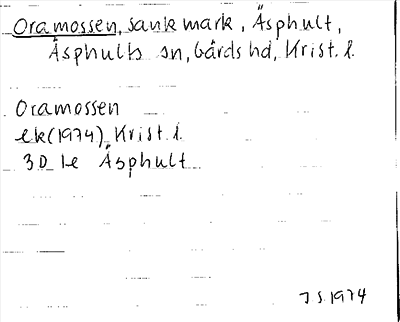 Oramossen, sankmark, Äsphult,
Äsphults sn, Gärds hd, Krist. l.
Oramossen
ek (1974), Krist. l.
3D 1e Äsphult
J.S. 1974